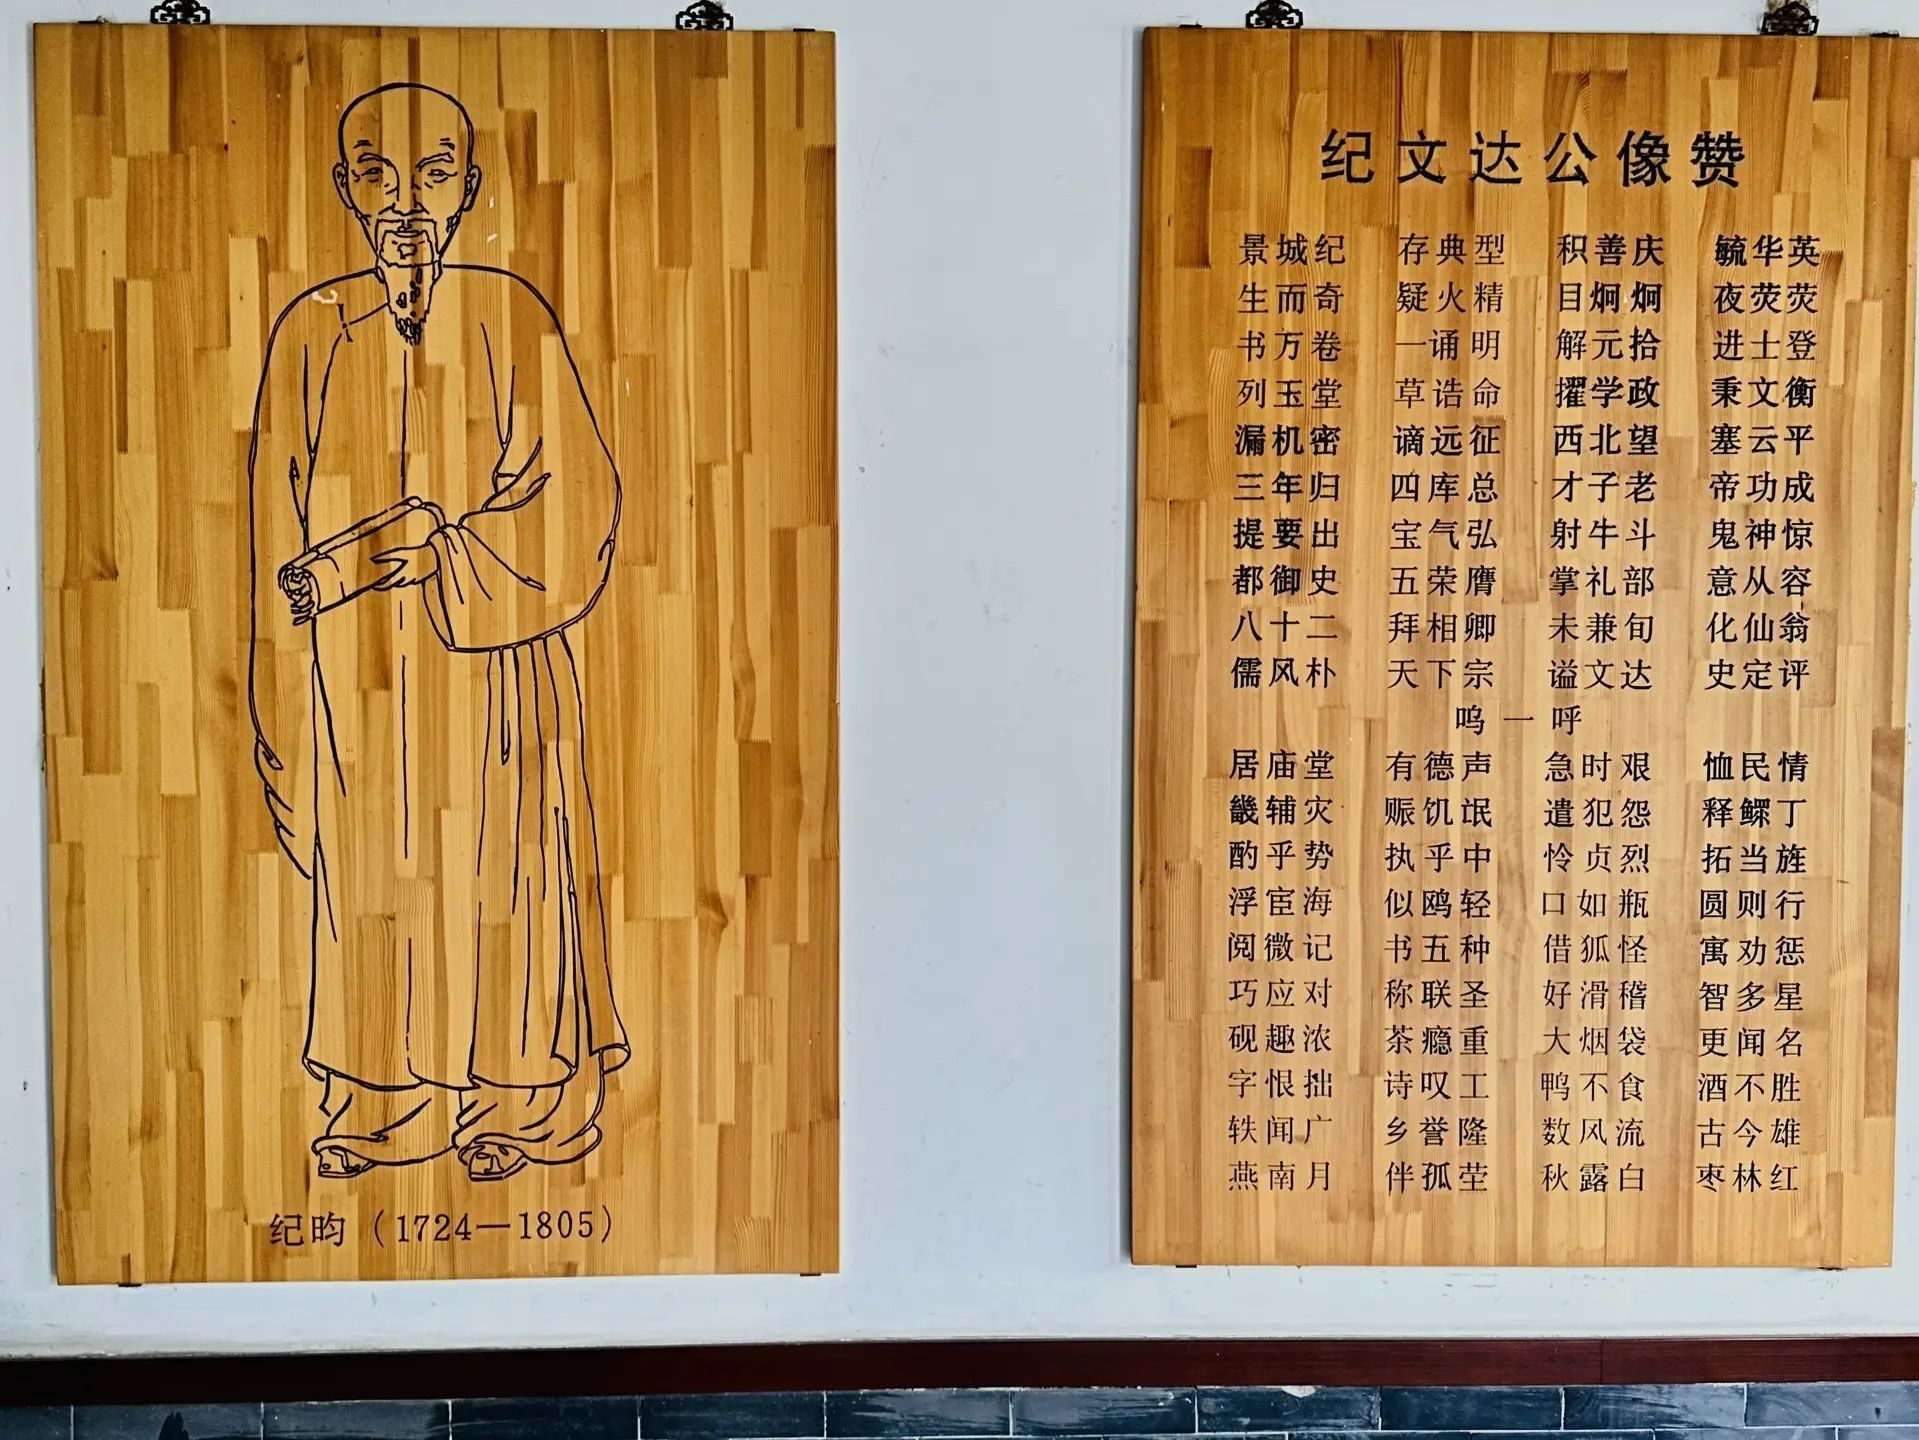 纪昀（1724—1805）
纪文达公像赞
景城纪 存典型 积善庆 毓华英
生而奇 疑火精 目炯炯 夜荧荧
书万卷 一诵明 解元拾 进士登
列玉堂 草诰命 擢学政 秉文衡
漏机密 谪远征 西北望 塞云平
三年归 四库总 才子老 帝功成
提要出 宝气弘 射牛斗 鬼神惊
都御史 五荣膺 掌礼部 意从容
八十二 拜相卿 未兼旬 化仙翁
儒风朴 天下宗 谥文达 史定评
呜一呼
居庙堂 有德声 急时艰 恤民情
畿辅灾 赈饥氓 遣犯怨 释鳏丁
酌乎势 执乎中 怜贞烈 拓当旌
浮宦海 似鸥轻 口如瓶 圆则行
阅微记 书五种 借狐怪 寓劝惩
巧应对 称联圣 好滑稽 智多星
砚趣浓 茶瘾重 大烟袋 更闻名
字恨拙 诗叹工 鸭不食 酒不胜
轶闻广 乡誉隆 数风流 古今雄
燕南月 伴孤茔 秋露白 枣林红